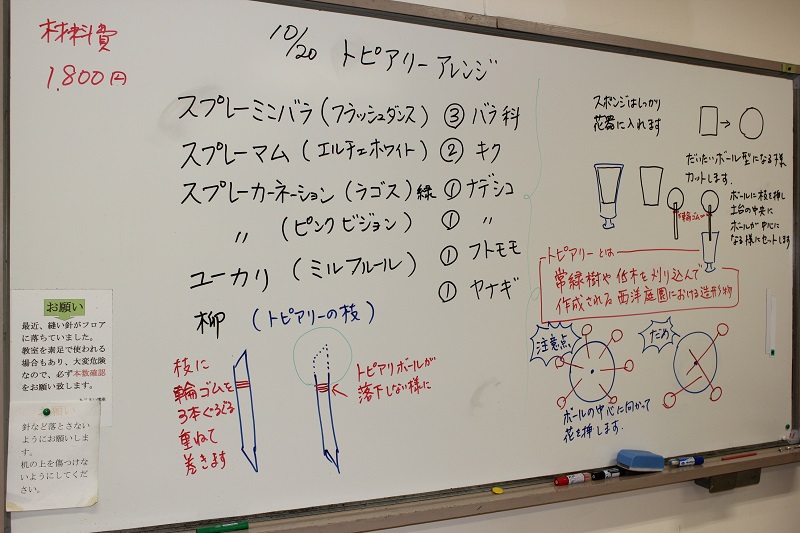 材料費
1,800円
10/20 トピアリーアレンジ
スプレーミニバラ(フラッシュダンス) ③ バラ科
スプレーマム(エルチェホワイト) ② キク
スプレーカーネーション(ラゴス)緑 ① ナデシコ
〃 (ピンクビジョン) ① 〃
ユーカリ (ミルフルール) ① フトモモ
柳 (トピアリーの枝) ① ヤナギ
枝に
輪ゴムを
3本ぐるぐる
重ねて
巻きます
トピアリボールが
落下しない様に
スポンジはしっかり
花器に入れます
だいたいボール型になる様
カットします.
ボールに枝を挿し
土台の中央に
ボールが中心に
なる様にセットします
輪ゴム
トピアリーとは
常緑樹や低木を刈り込んで
作成される西洋庭園における造形物
注意点.
だめ
ボールの中心に向かって
花を挿します.
お願い
最近、縫い針がフロア
に落ちていました。
教室を素足で使われる
場合もあり、大変危険
なので、必ず本数確認
をお願い致します。
お願い
針など落とさない
ようにお願いしま
す。
机の上を傷つけな
いようにしてくだ
さい。